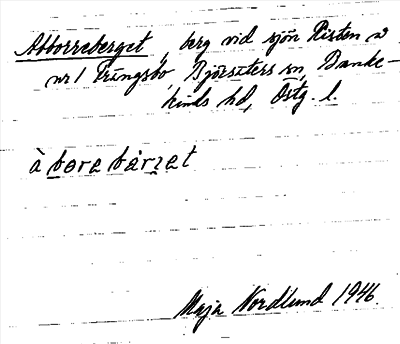 Abborreberget, berg vid sjön Risten v
nr 1 Fringsbo Björsäters sn, Banke-
kinds hd, Östg. l.
à bore bàrzet
Maja Nordlund 1946.